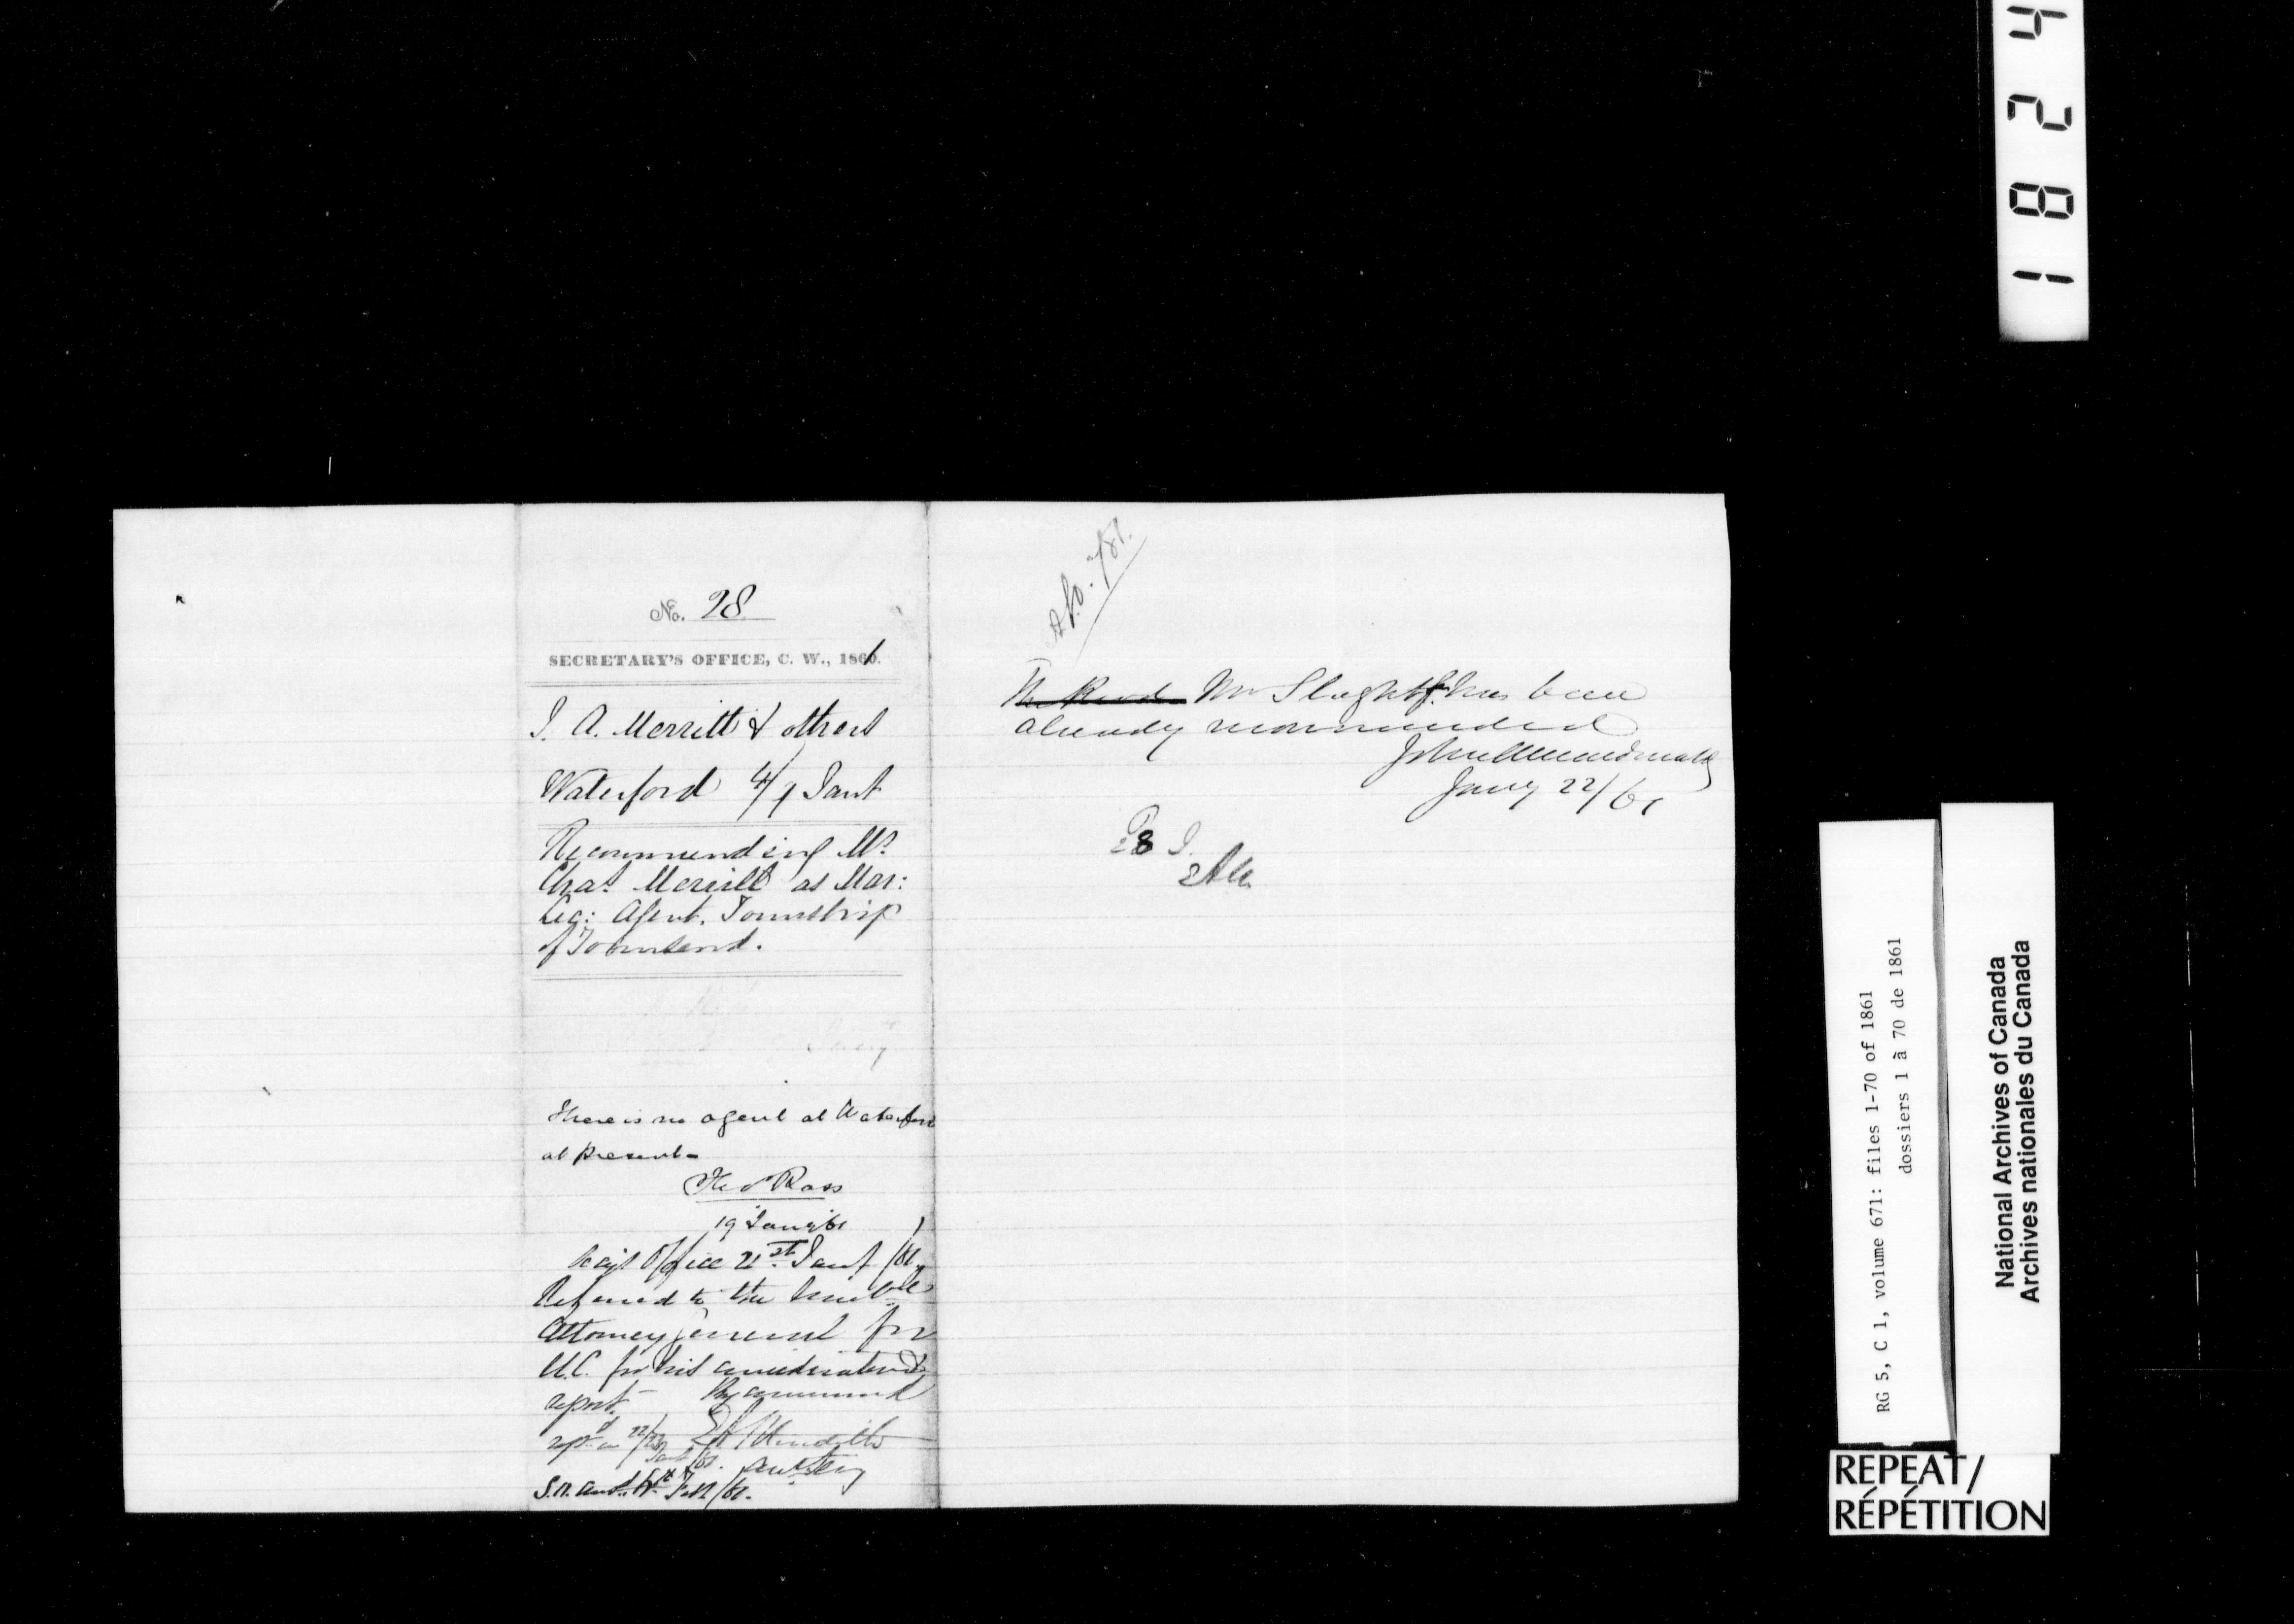 No. 28
SECRETARY'S OFFICE, C. W., 1861.
I. A. Merritt & others
Waterford 4/9 Jant
Recommending Mr
Chas Merritt as Mar:
Lic: Agent. Township
of Townsend.
There is no agent at Waterford
at present-
Theo Ross
19 Jany 61
Secy's Office 21st Jany /61
Referred to the Honble
Attorney General for
U.C. for his consideration &
report - By command
rept on 22/
E A Meredith
Asst Secy
S.N. and 6th Feb /61.
/61.
Mr Slaght has been
already recommended
John A Macdonald
Jany 22/61
EAM
1824
RG 5, C 1, volume 671: files 1-70 of 1861
dossiers 1 à 70 de 1861
National Archives of Canada
Archives nationales du Canada
REPEAT/
RÉPÉTITION